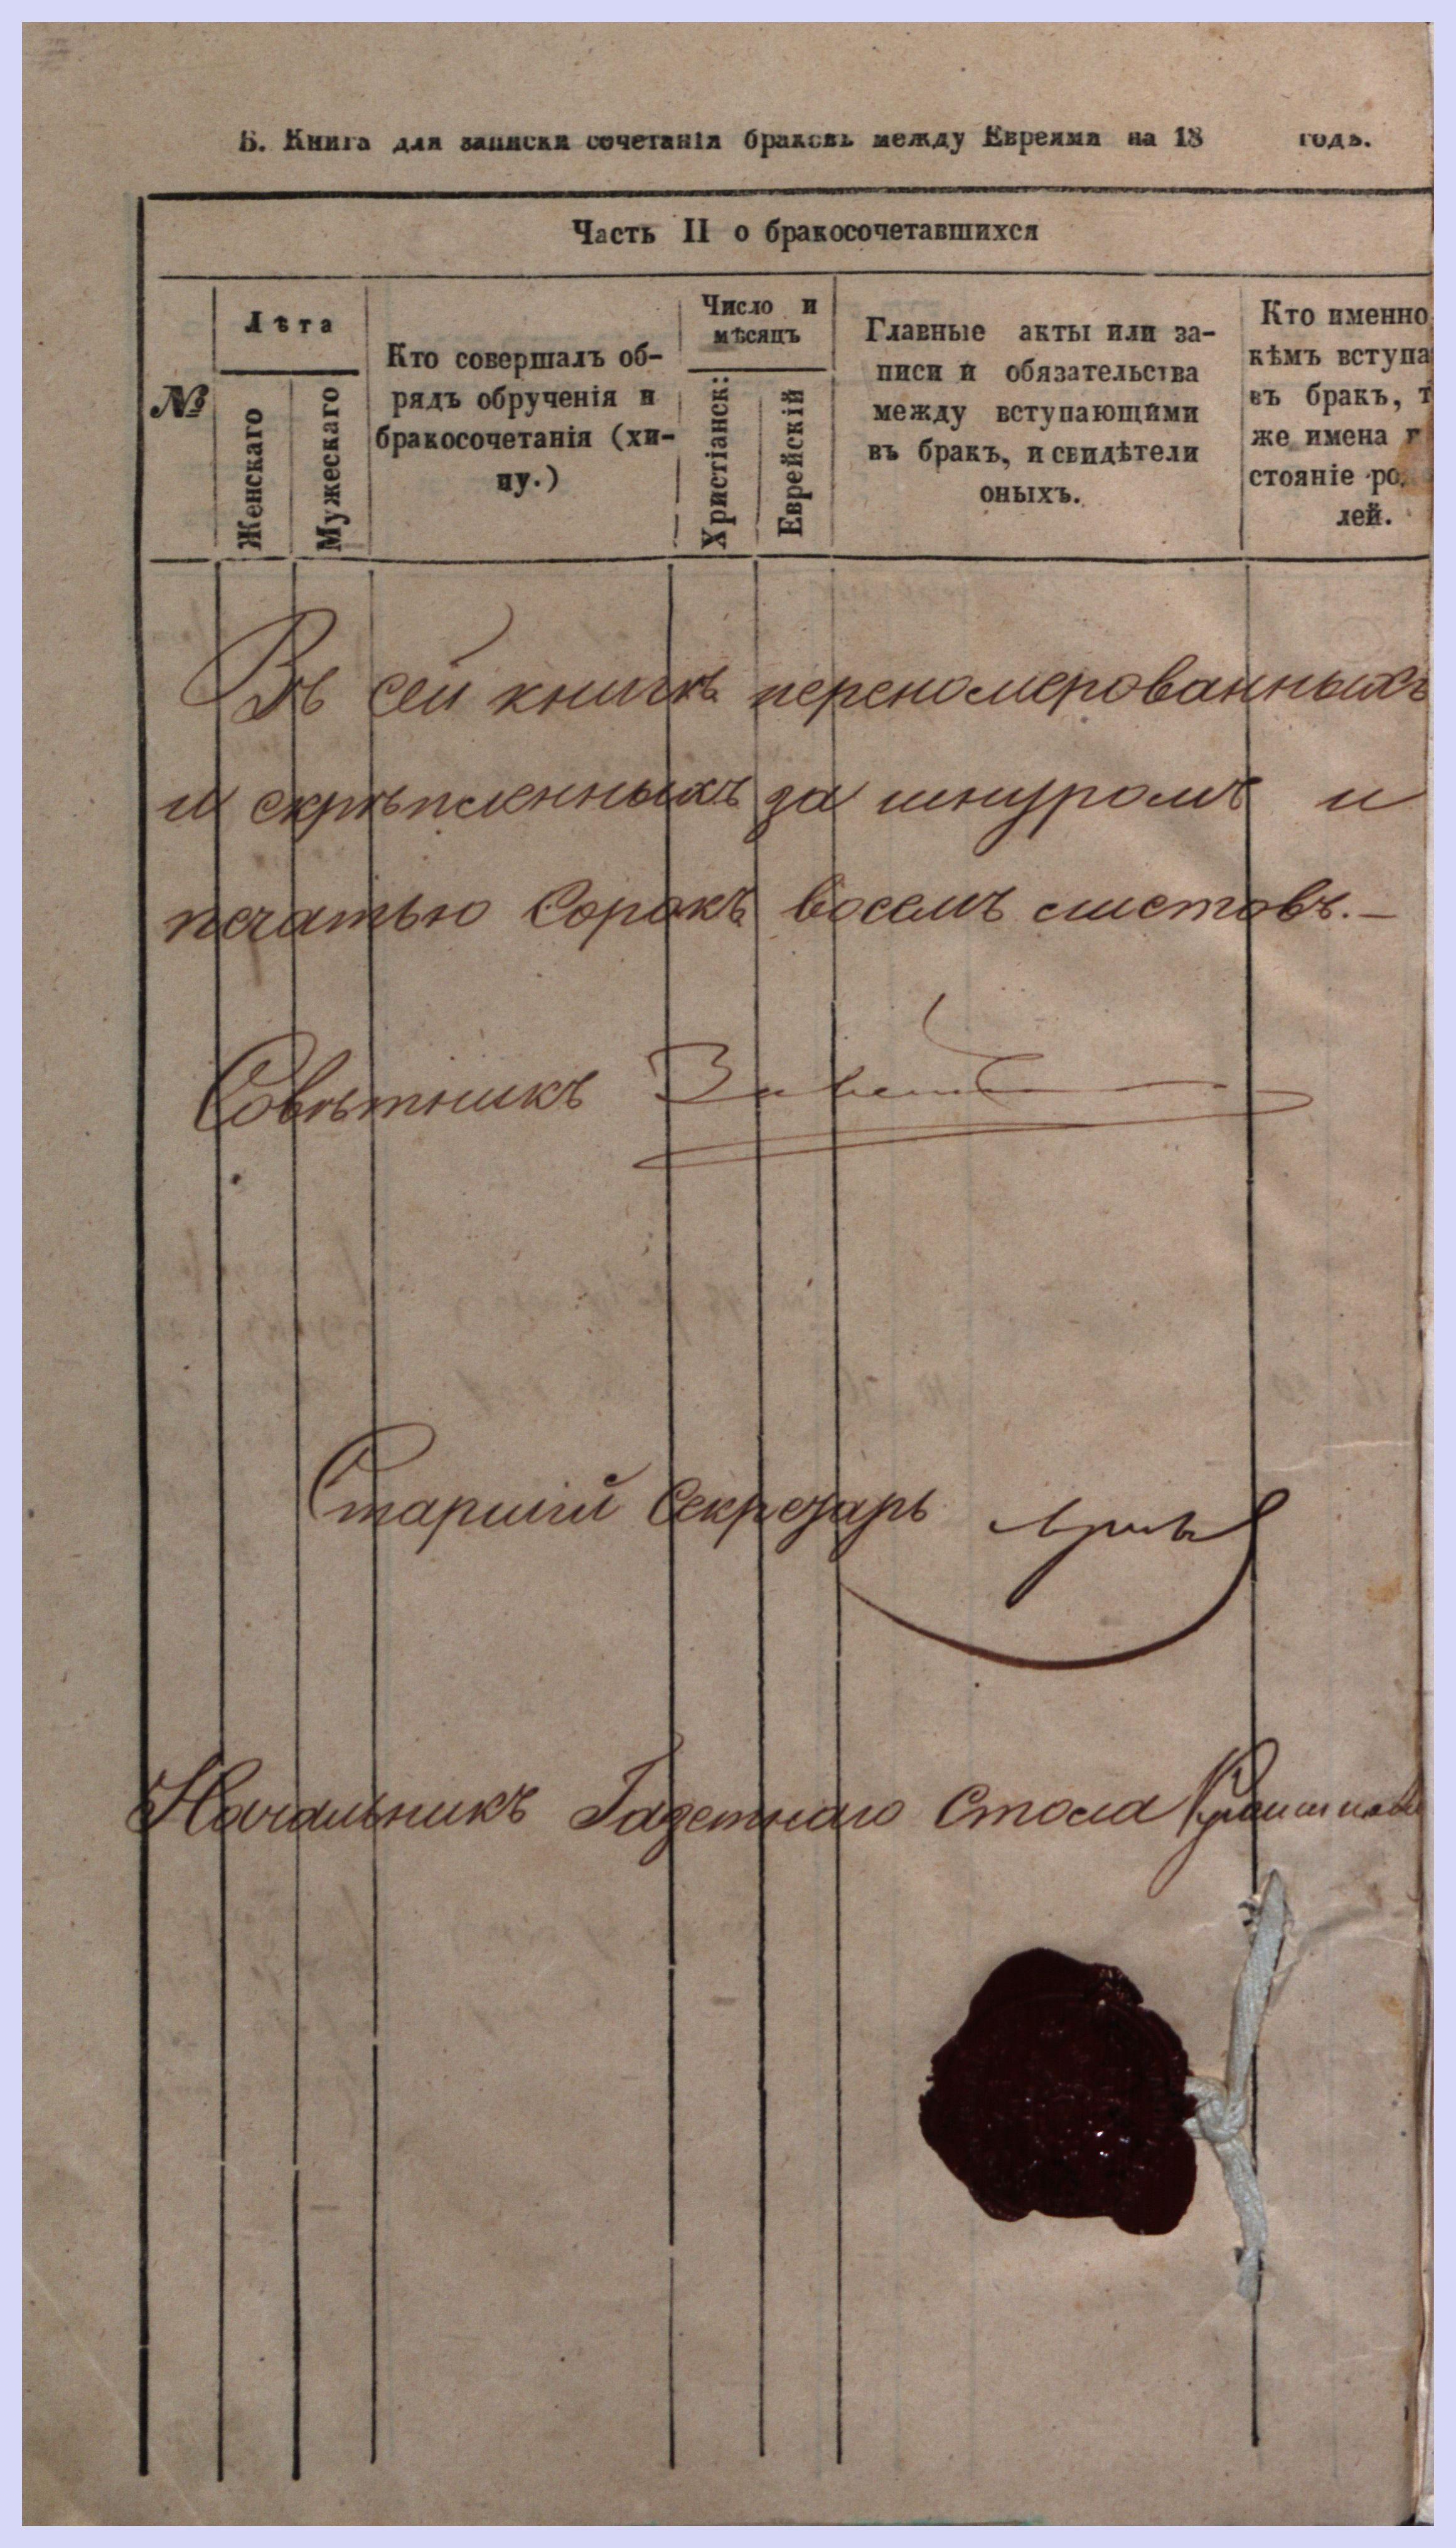 Б. Книга для записки сочетанія браковъ между Евреями на 18 годъ.
Часть II о бракосочетавшихся
№
Лѣта
Женскаго
Мужескаго
Кто совершалъ об-
рядъ обрученія и
бракосочетанія (хи-
пу.)
Число и
мѣсяцъ
Христіанск:
Еврейскій
Главные акты или за-
писи и обязательства
между вступающими
въ бракъ, и свидѣтели
оныхъ.
Кто именно
кѣмъ вступа
въ бракъ, т
же имена и
стояніе ро
лей.
Въ сей книгѣ переномерованныхъ
и скрѣпленныхъ за шнуромъ и
печатью Сорокъ восемъ листовъ.—
Совѣтникъ
Старшій Секретарь
Начальникъ Газетнаго Стола